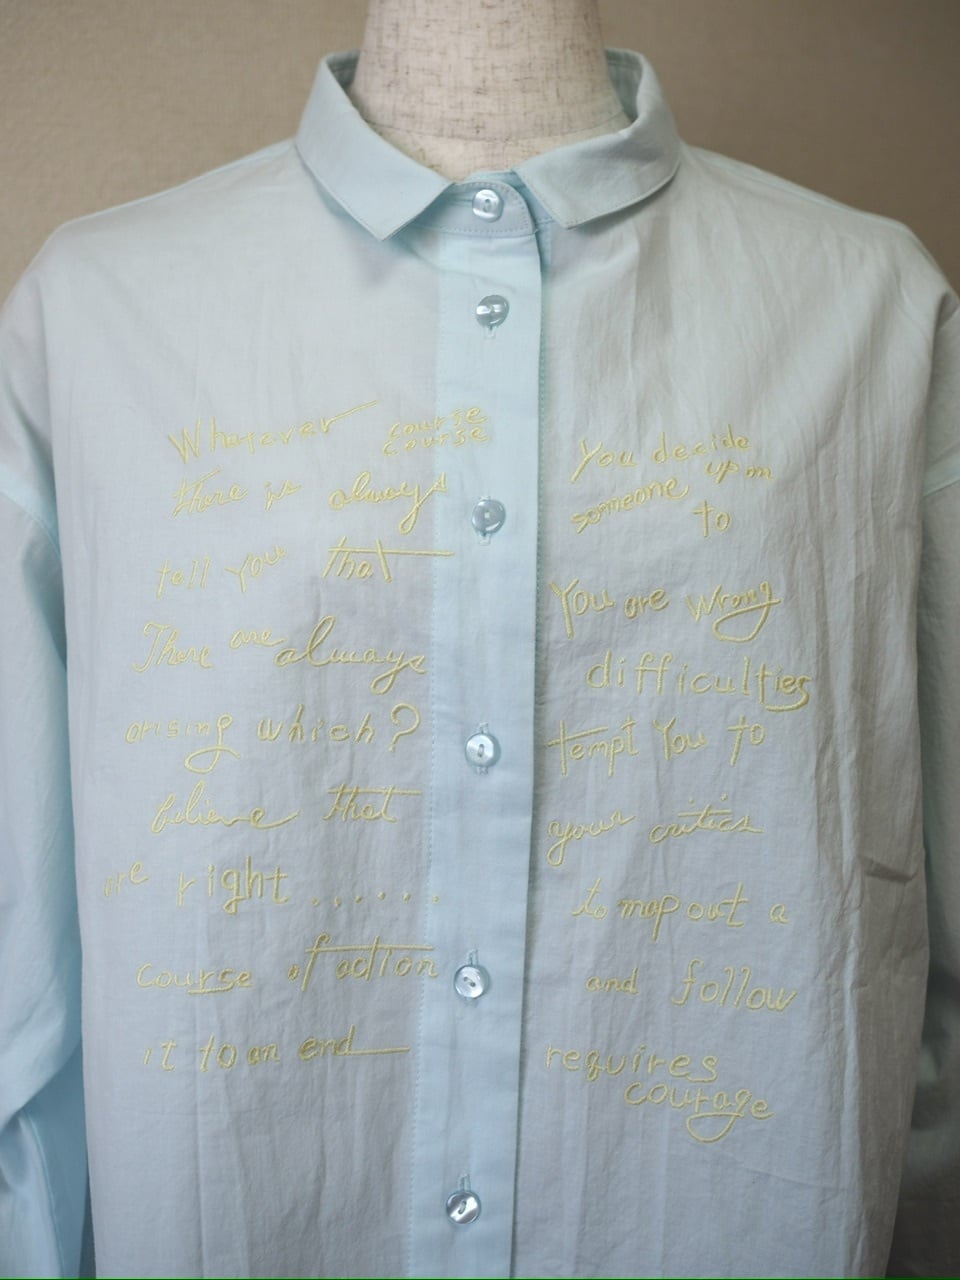 Whatever course You decide
course upon
there is always someone to
tell You that You are wrong
There are always difficulties
arising which? tempt You to
believe that your critics
are right ...... to map out a
course of action and follow
it to an end requires
courage